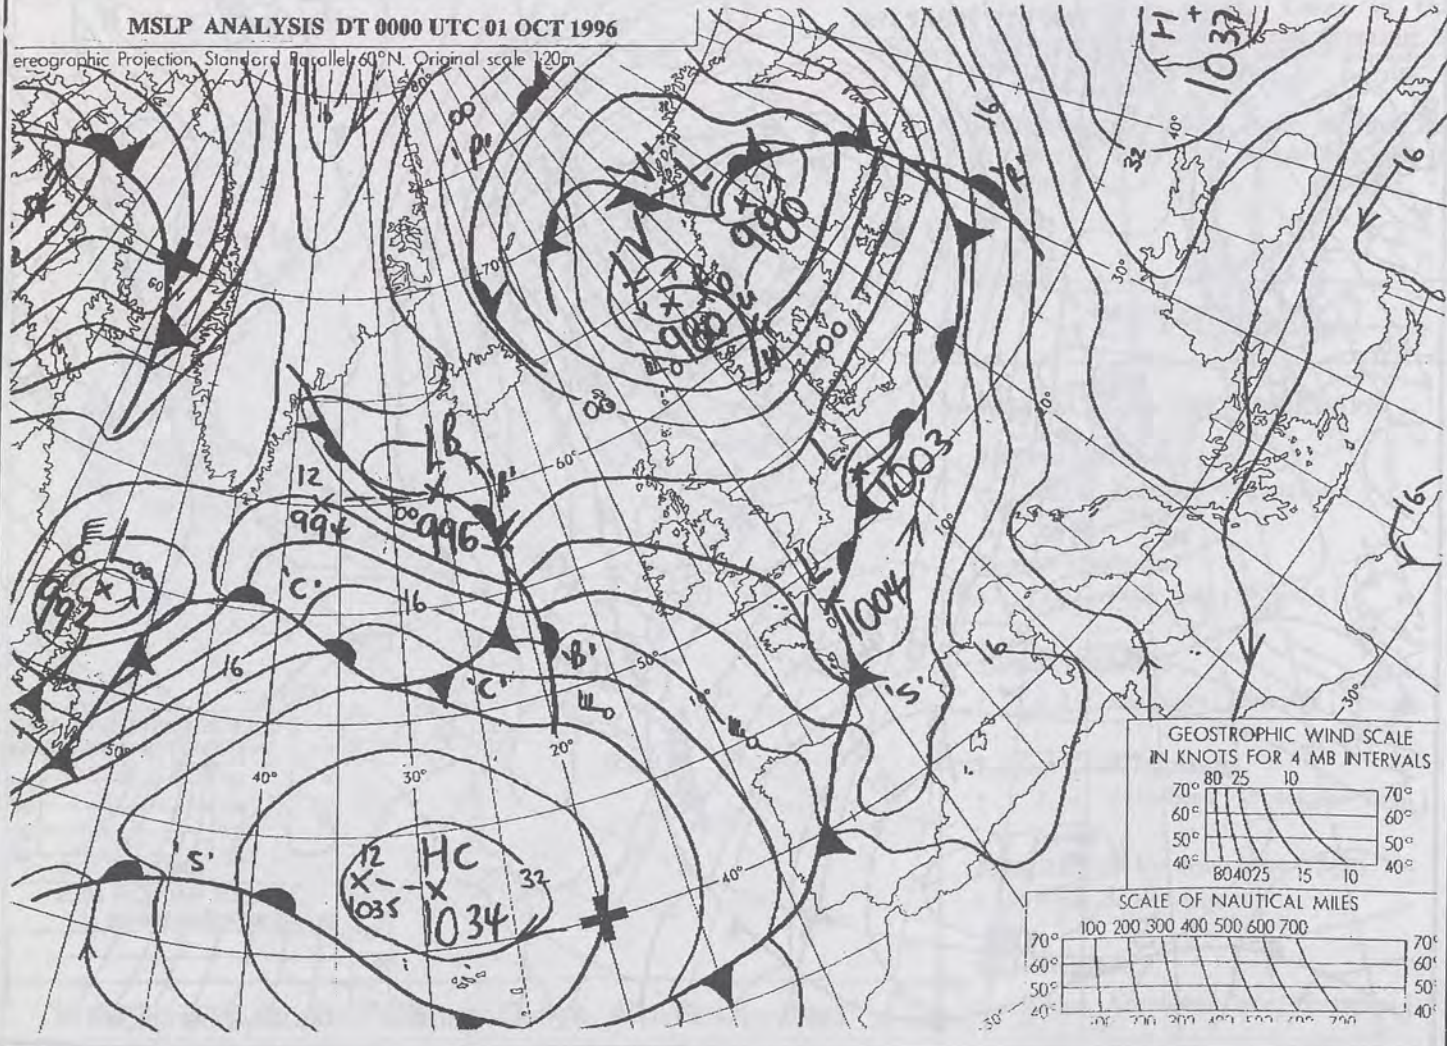 MSLP ANALYSIS DT 0000 UTC 01 OCT 1996
ereographic Projection, Standard Parallel 60°N. Original scale 1:20m
H
1037
16
32
40°
16
16
00
'P'
'R'
980
980
00
00
70°
60°
30°
20°
10°
L
1003
L
1004
'S'
16
16
LB
996
12
994
00
'B'
60°
'C'
16
'B'
'C'
L
992
00
16
50°
50°
40°
30°
20°
10°
'S'
12
1035
HC
1034
32
40°
30°
30°
GEOSTROPHIC WIND SCALE
IN KNOTS FOR 4 MB INTERVALS
80 25 10
70° 70°
60° 60°
50° 50°
40° 40°
80 40 25 15 10
SCALE OF NAUTICAL MILES
100 200 300 400 500 600 700
70° 70°
60° 60°
50° 50°
40° 40°
100 200 300 400 500 600 700